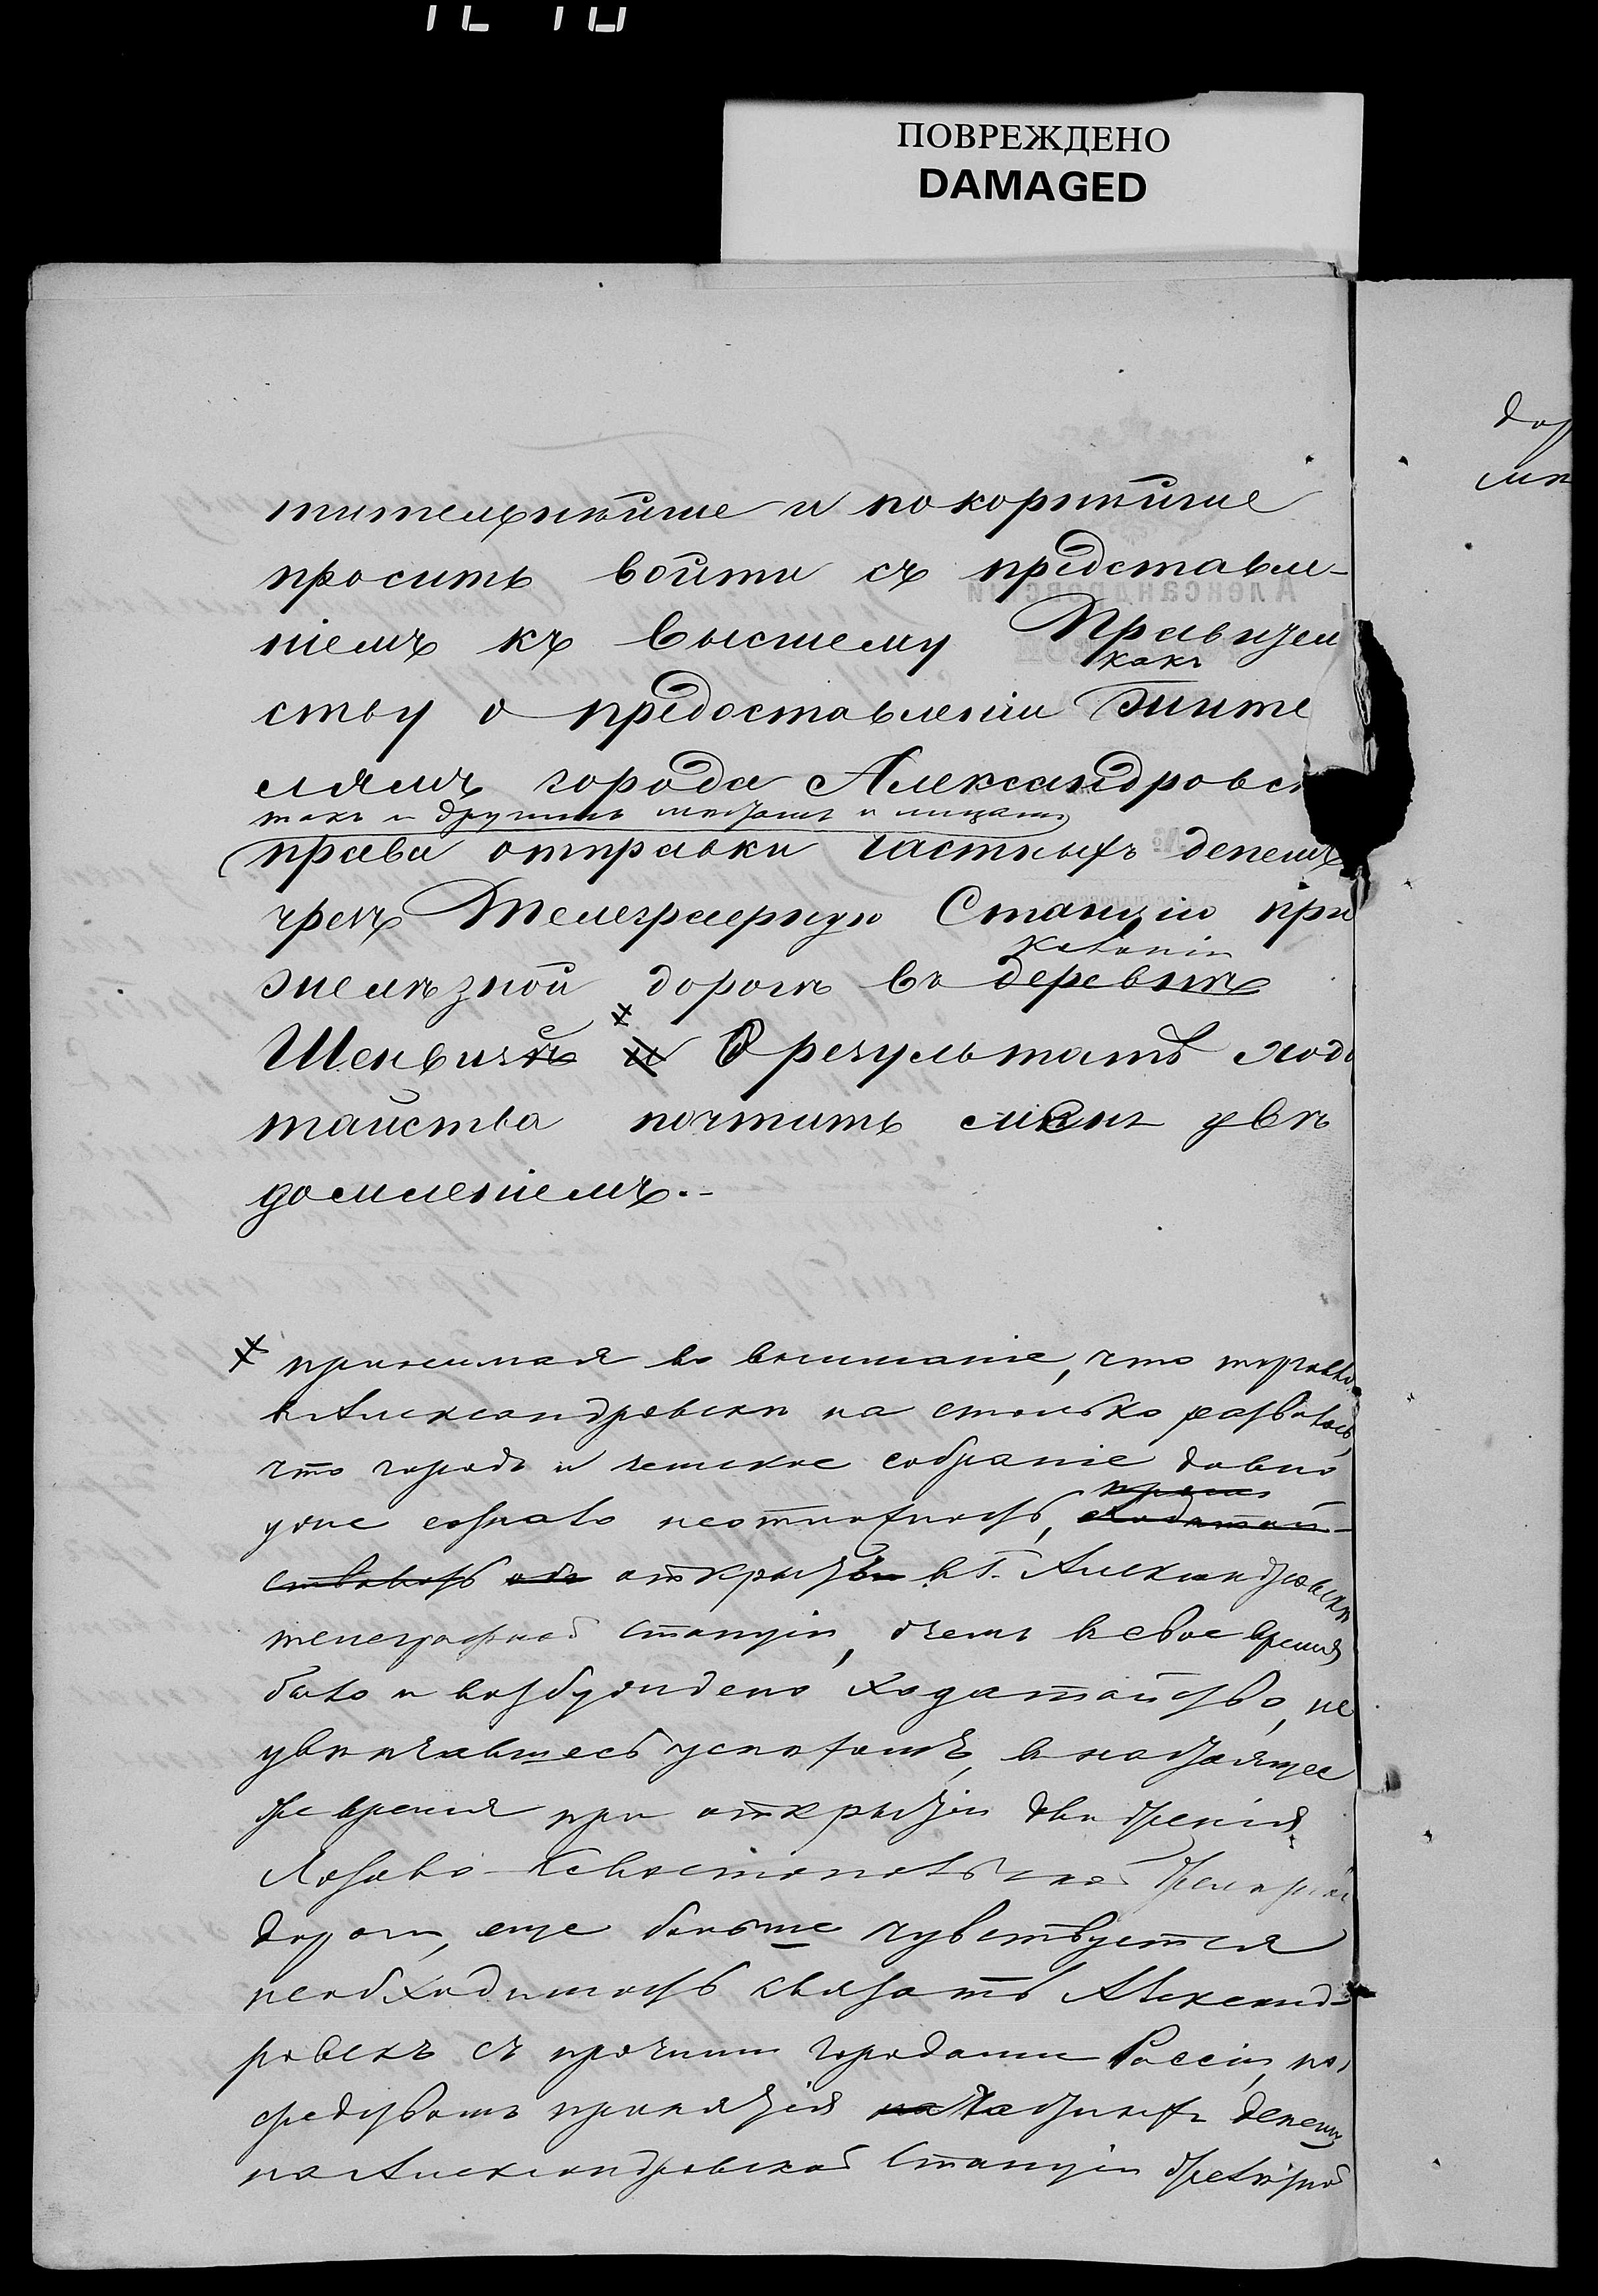 ПОВРЕЖДЕНО
DAMAGED
тительнѣйше и покорнѣйше
просить войти съ представле-
ніемъ къ Высшему Правител
какъ
ству о предоставленіи жите
лямъ города Александровс
такъ и другимъ мѣстамъ и лицамъ
права отправки частныхъ депешъ
чрезъ Телеграфную Станцію при
желѣзной дорогѣ въ деревнѣ
Колоніи
Шенвизе и О результатѣ хода
тайства почтить меня увѣ
домленіемъ.-
принимая во вниманіе, что торговля
въ Александровскѣ на столько развилась,
что городъ и земское собраніе давно
уже сознало необходимость, ходатай-
ствовать объ открытіи въ г. Александровскѣ
телеграфной станціи, о чемъ в свое время
было и возбуждено ходатайство, не
увѣнчавшееся успѣхомъ, в настоящее
же время при открытіи движенія
Лозово-Севастопольской желѣзной
дороги, еще больше чувствуется
необходимость связать Александ-
ровскъ съ прочими городами Россіи, по
средствомъ принятія частныхъ депешъ
на Александровской станціи желѣзной